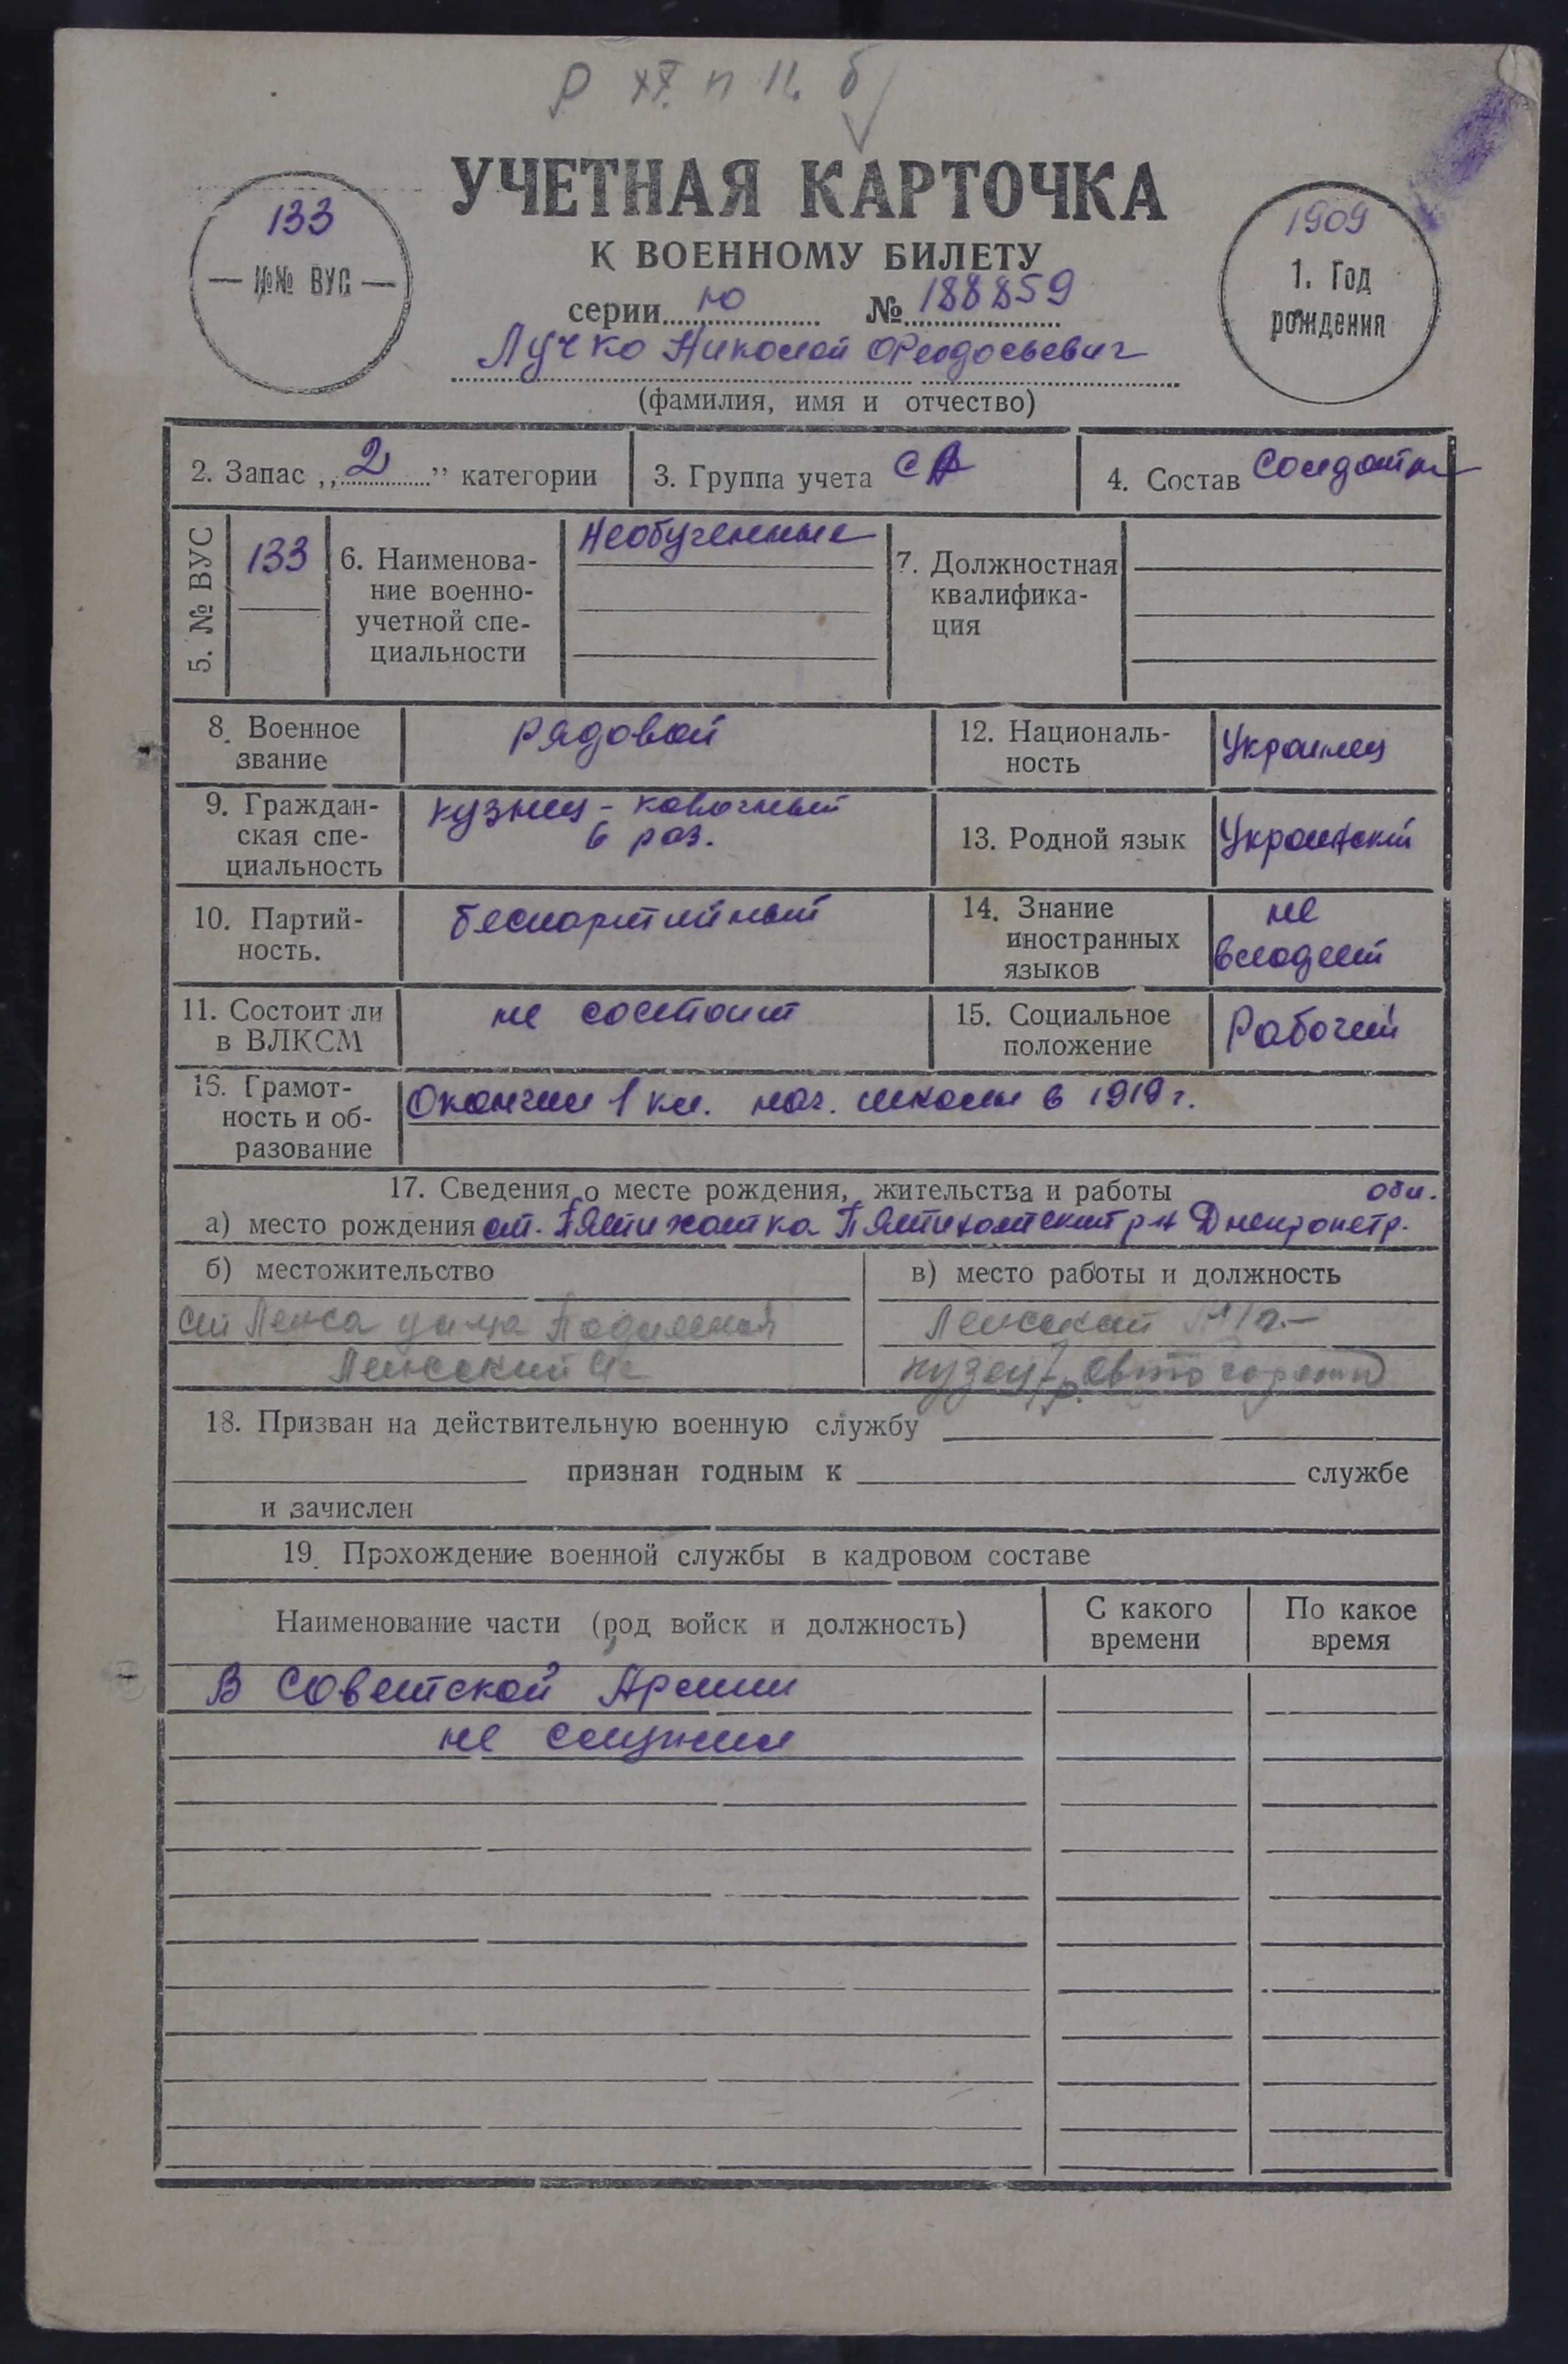 р XX. п 11. б
УЧЕТНАЯ КАРТОЧКА
К ВОЕННОМУ БИЛЕТУ
133
— №№ ВУС —
1909
1. Год
рождения
серии ю № 188859
Лучко Николай Феодосьевич
(фамилия, имя и отчество)
2. Запас „2” категории
3. Группа учета СА
4. Состав Солдаты
5. № ВУС
133
6. Наименова-
ние военно-
учетной спе-
циальности
Необученные
7. Должностная
квалифика-
ция
8. Военное
звание
рядовой
12. Националь-
ность
Украинец
9. Граждан-
ская спе-
циальность
кузнец - ковочный
6 раз.
13. Родной язык
Украинский
10. Партий-
ность.
беспартийный
14. Знание
иностранных
языков
не
владеет
11. Состоит ли
в ВЛКСМ
не состоит
15. Социальное
положение
Рабочий
16. Грамот-
ность и об-
разование
Окончил 1 кл. нач. школы в 1919 г.
17. Сведения о месте рождения, жительства и работы
обл.
а) место рождения ст. Пятихатка Пятихатский р-н Днепропетр.
б) местожительство
в) место работы и должность
ст Ленса улица
Ленский
Ленский
кузнец
18. Призван на действительную военную службу
признан годным к службе
и зачислен
19. Прохождение военной службы в кадровом составе
Наименование части (род войск и должность)
С какого
времени
По какое
время
В Советской Армии
не служил